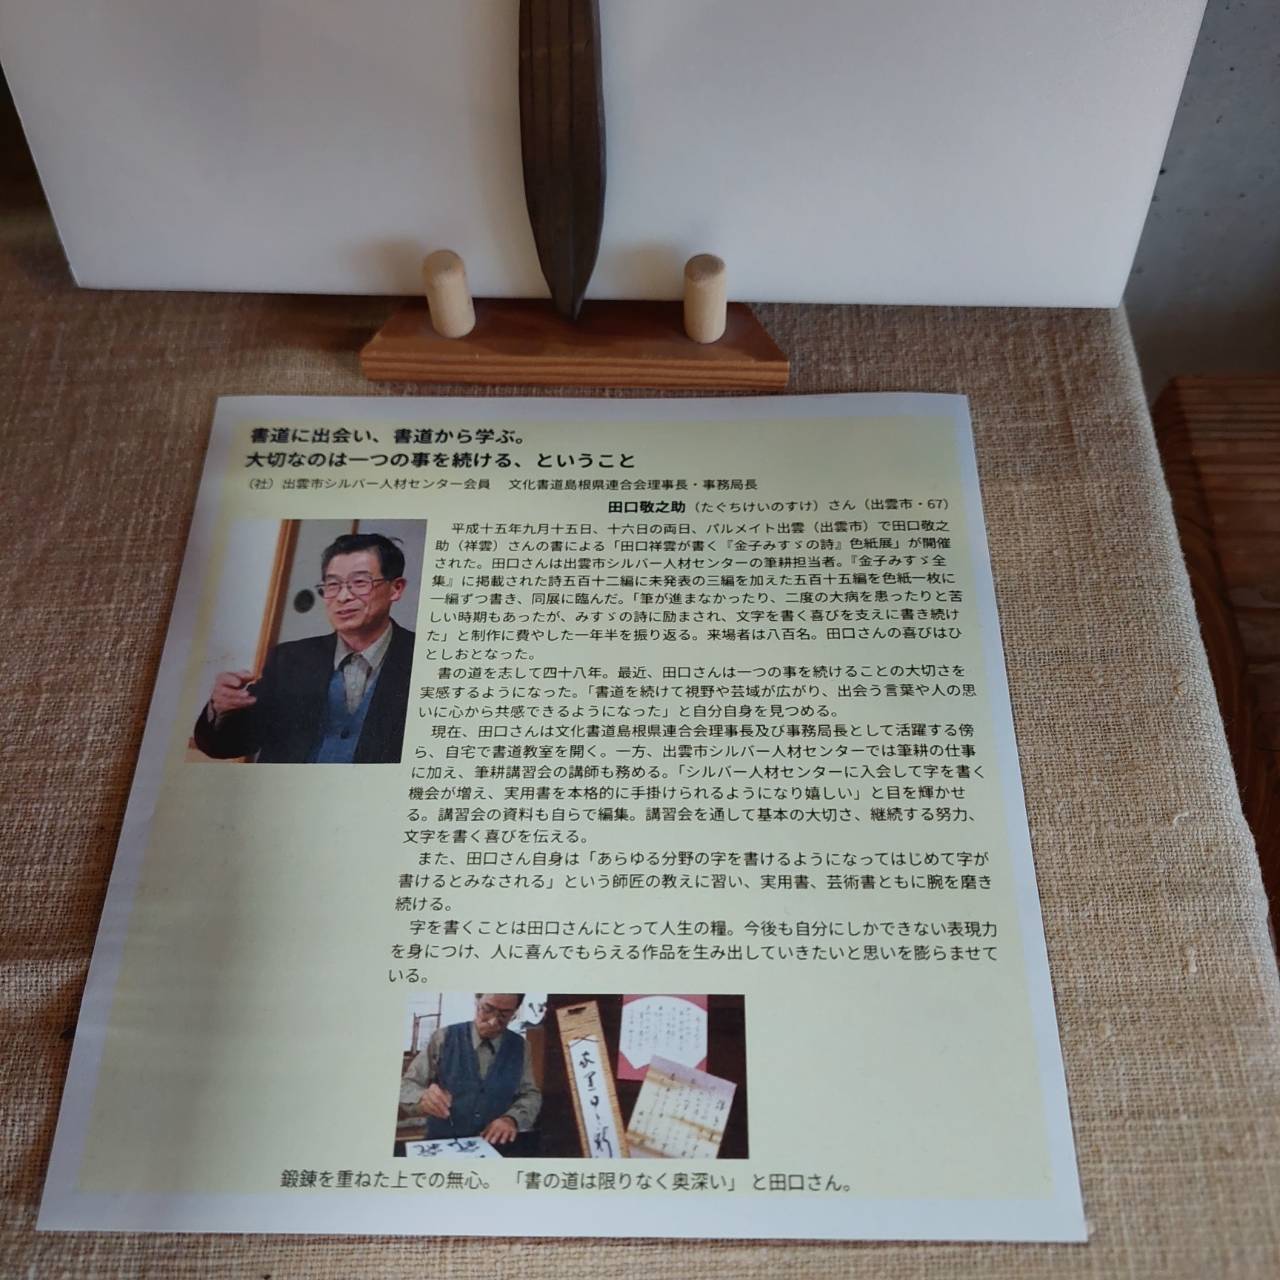 書道に出会い、書道から学ぶ。
大切なのは一つの事を続ける、ということ
（社）出雲市シルバー人材センター会員　文化書道島根県連合会理事長・事務局長
田口敬之助（たぐちけいのすけ）さん（出雲市・67）
平成十五年九月十五日、十六日の両日、パルメイト出雲（出雲市）で田口敬之
助（祥雲）さんの書による「田口祥雲が書く『金子みすゞの詩』色紙展」が開催
された。田口さんは出雲市シルバー人材センターの筆耕担当者。『金子みすゞ全
集』に掲載された詩五百十二編に未発表の三編を加えた五百十五編を色紙一枚に
一編ずつ書き、同展に臨んだ。「筆が進まなかったり、二度の大病を患ったりと苦
しい時期もあったが、みすゞの詩に励まされ、文字を書く喜びを支えに書き続け
た」と制作に費やした一年半を振り返る。来場者は八百名。田口さんの喜びはひ
としおとなった。
書の道を志して四十八年。最近、田口さんは一つの事を続けることの大切さを
実感するようになった。「書道を続けて視野や芸域が広がり、出会う言葉や人の思
いに心から共感できるようになった」と自分自身を見つめる。
現在、田口さんは文化書道島根県連合会理事長及び事務局長として活躍する傍
ら、自宅で書道教室を開く。一方、出雲市シルバー人材センターでは筆耕の仕事
に加え、筆耕講習会の講師も務める。「シルバー人材センターに入会して字を書く
機会が増え、実用書を本格的に手掛けられるようになり嬉しい」と目を輝かせ
る。講習会の資料も自らで編集。講習会を通して基本の大切さ、継続する努力、
文字を書く喜びを伝える。
また、田口さん自身は「あらゆる分野の字を書けるようになってはじめて字が
書けるとみなされる」という師匠の教えに習い、実用書、芸術書ともに腕を磨き
続ける。
字を書くことは田口さんにとって人生の糧。今後も自分にしかできない表現力
を身につけ、人に喜んでもらえる作品を生み出していきたいと思いを膨らませて
いる。
鍛錬を重ねた上での無心。「書の道は限りなく奥深い」と田口さん。